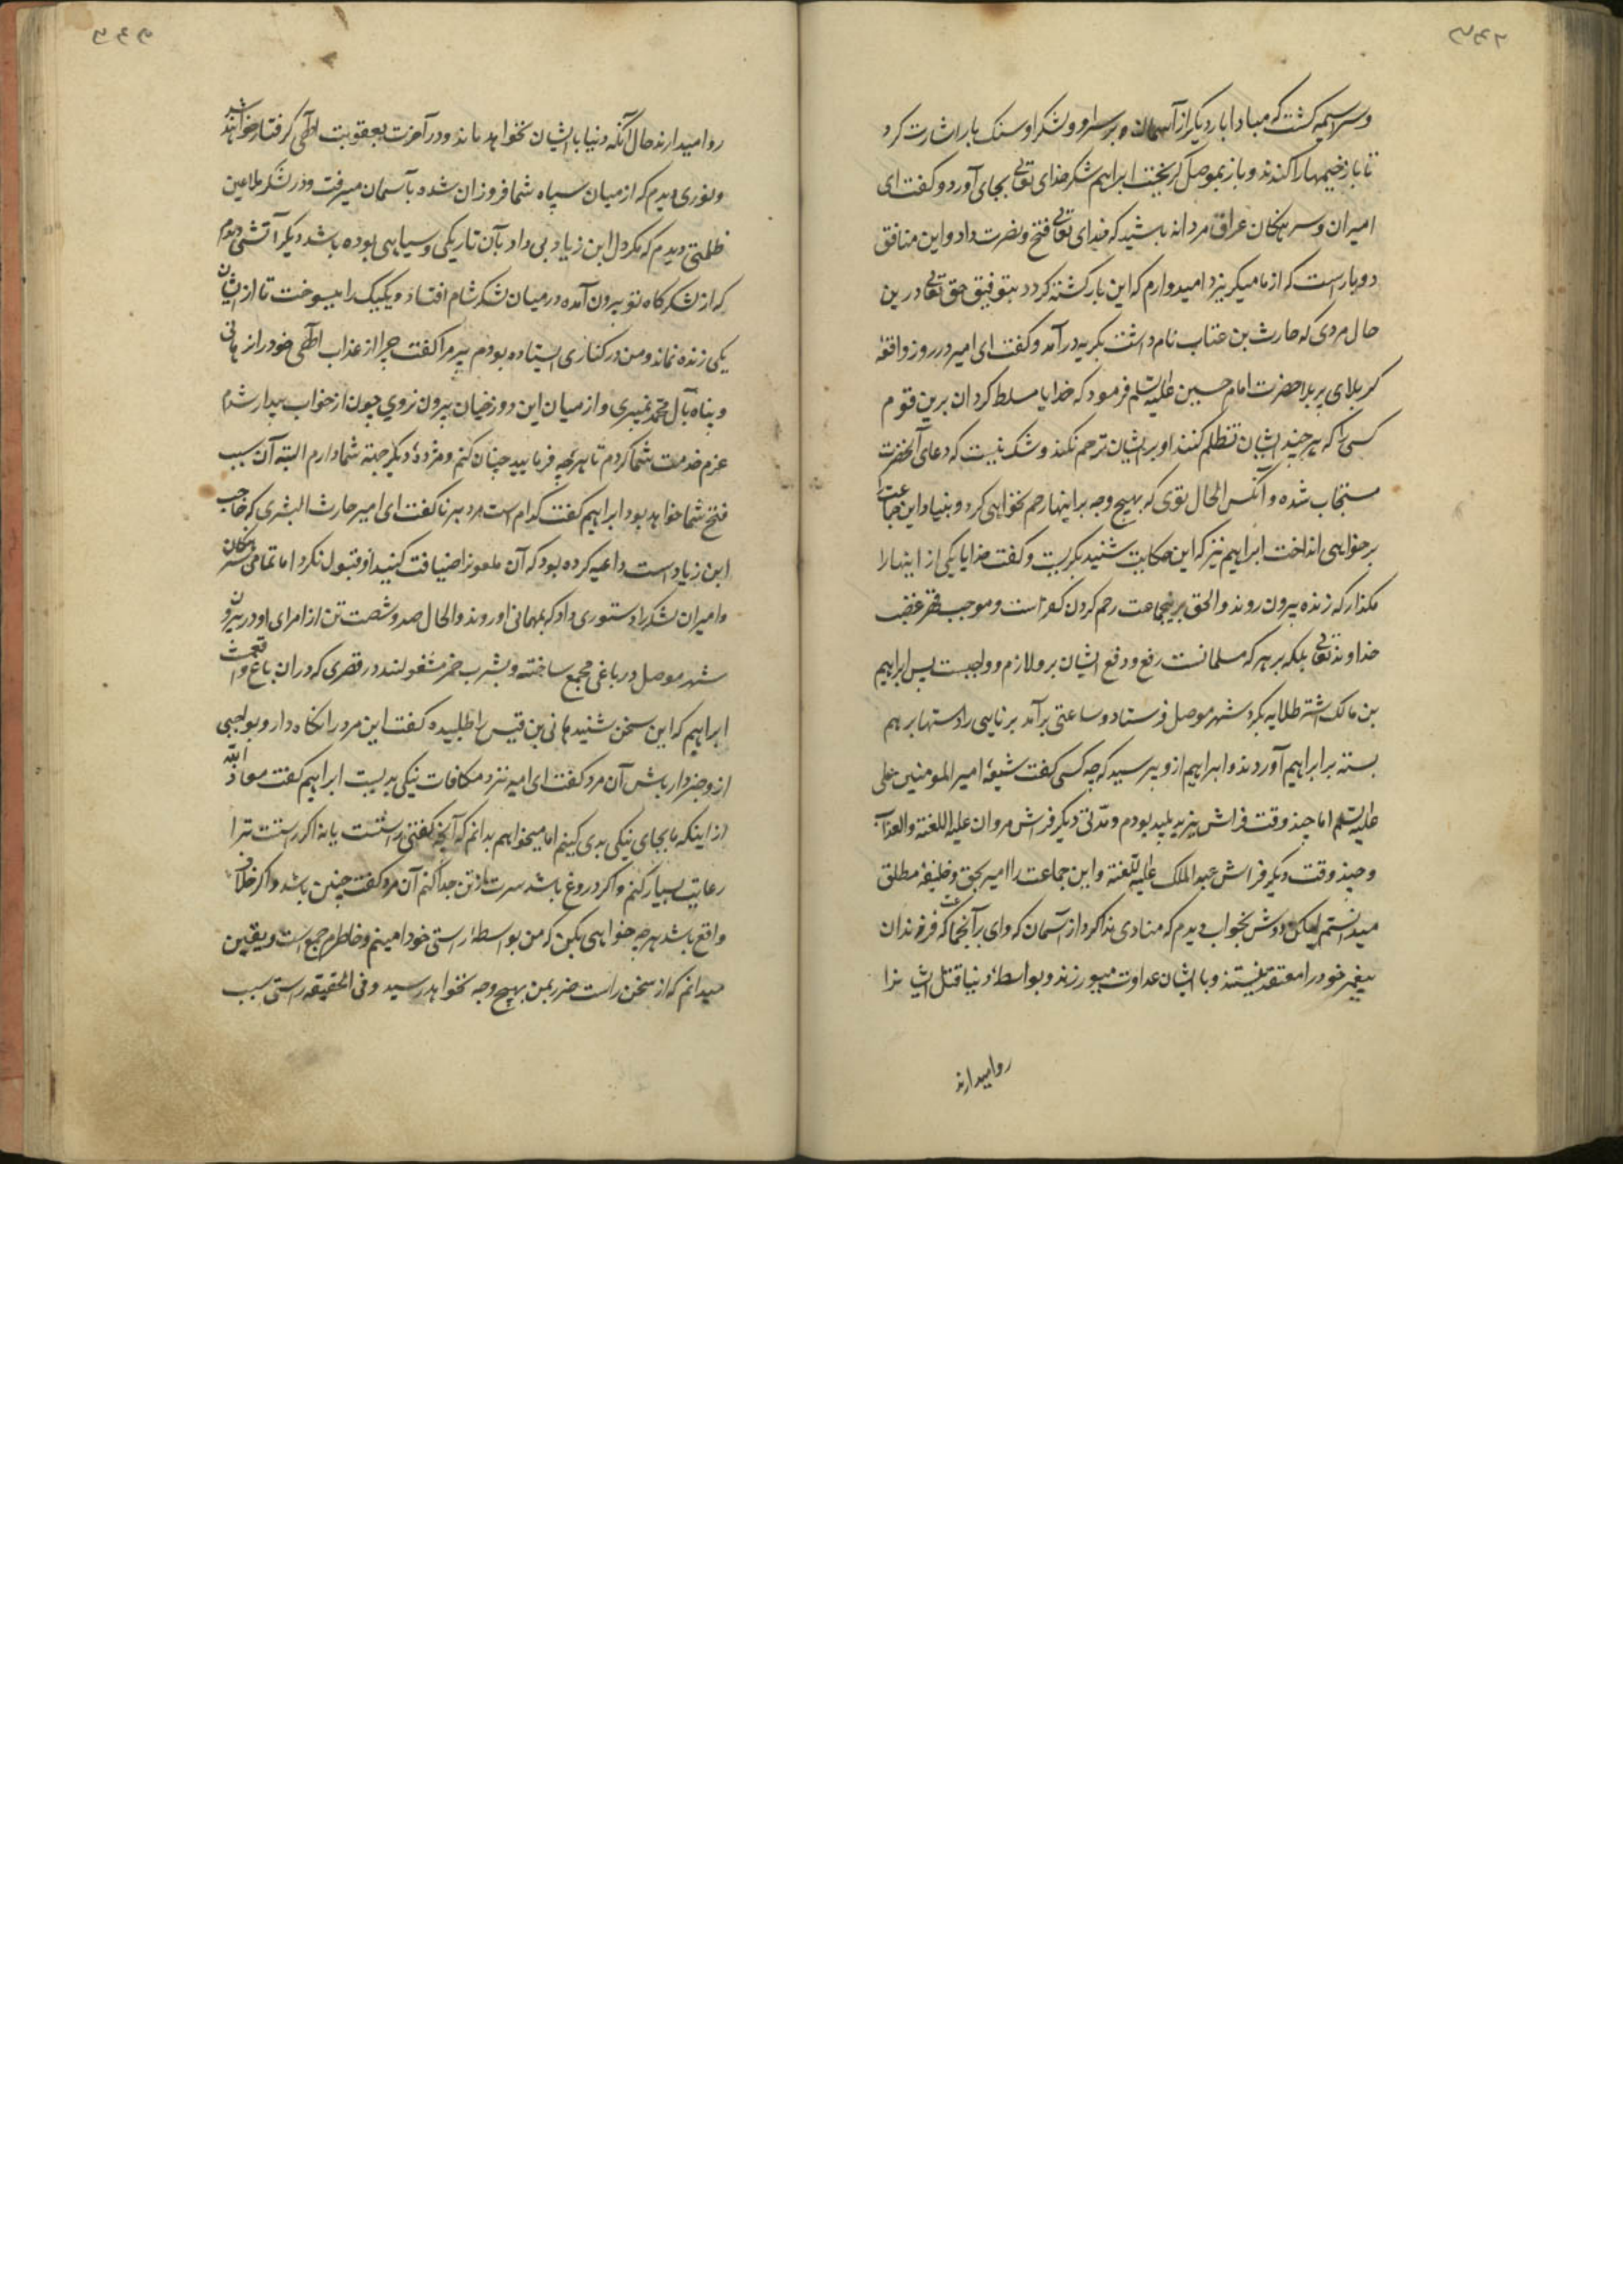 وسراسیمه کشت که مبادا بار دیکر از آسمان بر سر او و لشکر او سنک بارد اشارت کرد
تا باز خیمها را کندند و باز بموصل کریخت ابراهیم شکر خدای تعالی بجای آورد و کفت ای
امیران و سرهنکان عراق مردانه باشید که خدای تعالی فتح و نصرت داد و این منافق
دو بار است که از ما میکریزد امیدوارم که این بار کشته کردد بتوفیق حق تعالی درین
حال مردی که حارث بن عتاب نام داشت بکریه درآمد و کفت ای امیر در روز واقعهٔ
کربلای پر بلا حضرت امام حسین علیه السلم فرمود که خدایا مسلط کردان برین قوم
کسی را که هرچند ایشان تظلم کنند او بر ایشان ترحم نکند و شک نیست که دعای آنحضرت
مستجاب شده و آنکس الحال توی که بهیچ وجه بر اینها رحم نخواهی کرد و بنیاد این جماعت
بر خواهی انداخت ابراهیم نیز که این حکایت شنید بکریست و کفت خدایا یکی از اینها را
مکذار که زنده بیرون روند والحق برینجماعت رحم کردن کفر است و موجب قهر و غضب
خداوند تعالی بلکه بر هر که مسلمانست رفع و دفع ایشان برو لازم و واجبست پس ابراهیم
بن مالک اشتر طلایه بکرد شهر موصل فرستاد و ساعتی برآمد برنایی را دستها بر هم
بسته بر ابراهیم آوردند و ابراهیم ازو پرسید که چه کسی کفت شیعهٔ امیر المومنین علی
علیه السلم اما چند وقت فراش یزید پلید بودم و مدّتی دیکر فراش مروان علیه اللعنة والعذاب
و چند وقت دیکر فراش عبد الملک علیه اللعنة و این جماعت را امیر بحق و خلیفهٔ مطلق
میدانستم لیکن دوش بخواب دیدم که منادی ندا کرد از آسمان که وای بر آنجماعت که فرزندان
پیغمبر خود را معتقد نیستند و با ایشان عداوت میورزند و بواسطهٔ دنیا قتل ایشانرا
روامیدارند
روا میدارند حال آنکه دنیا با ایشان نخواهد ماند و در آخرت بعقوبت الهی کرفتار خواهند شد
و نوری دیدم که از میان سپاه شما فروزان شده بآسمان میرفت و در لشکر ملاعین
ظلمتی دیدم که مکر دل ابن زیاد بی داد بآن تاریکی و سیاهی بوده باشد دیکر آتشی دیدم
که از لشکرکاه تو بیرون آمده در میان لشکر شام افتاد و یکیک را میسوخت تا از ایشان
یکی زنده نماند و من در کناری ایستاده بودم پیر مرا کفت چرا از عذاب الهی خود را نرهانی
و پناه بآل محمد نمیبری و از میان این دوزخیان بیرون نروی چون از خواب بیدار شدم
عزم خدمت شما کردم تا هرچه فرمایید چنان کنم و مژدهٔ دیکر جهة شما دارم البته آن سبب
فتح شما خواهد بود ابراهیم کفت کدام است مرد برنا کفت ای امیر حارث البشری که حاجب
ابن زیاد است داعیه کرده بود که آن ملعونرا ضیافت کنید او قبول نکرد اما تمامی سرهنکان
و امیران لشکر را دستوری داد که بمهمانی او روند والحال صد و شصت تن از امرای او در بیرون
شهر موصل در باغی مجمع ساخته و بشرب خمر مشغولند در قصری که در ان باغ واقعست
ابراهیم که این سخن شنید هانی بن قیس را طلبیده کفت این مرد را نکاه دار و بواجبی
ازو خبردار باش آن مرد کفت ای امیر نزد مکافات نیکی بدیست ابراهیم کفت معاذ الله
از اینکه ما بجای نیکی بدی کنیم اما میخواهم بدانم که آنچه کفتی راستست یا نه اکر راستست ترا
رعایت بسیار کنم و اکر دروغ باشد سرت از تن جدا کنم آن مرد کفت چنین باشد و اکر خلاف
واقع باشد هرچه خواهی بکن که من بواسطهٔ راستی خود امینم و خاطرم جمع است و یقین
میدانم که از سخن راست ضرر بمن بهیچ وجه نخواهد رسید و فی الحقیقه راستی سبب